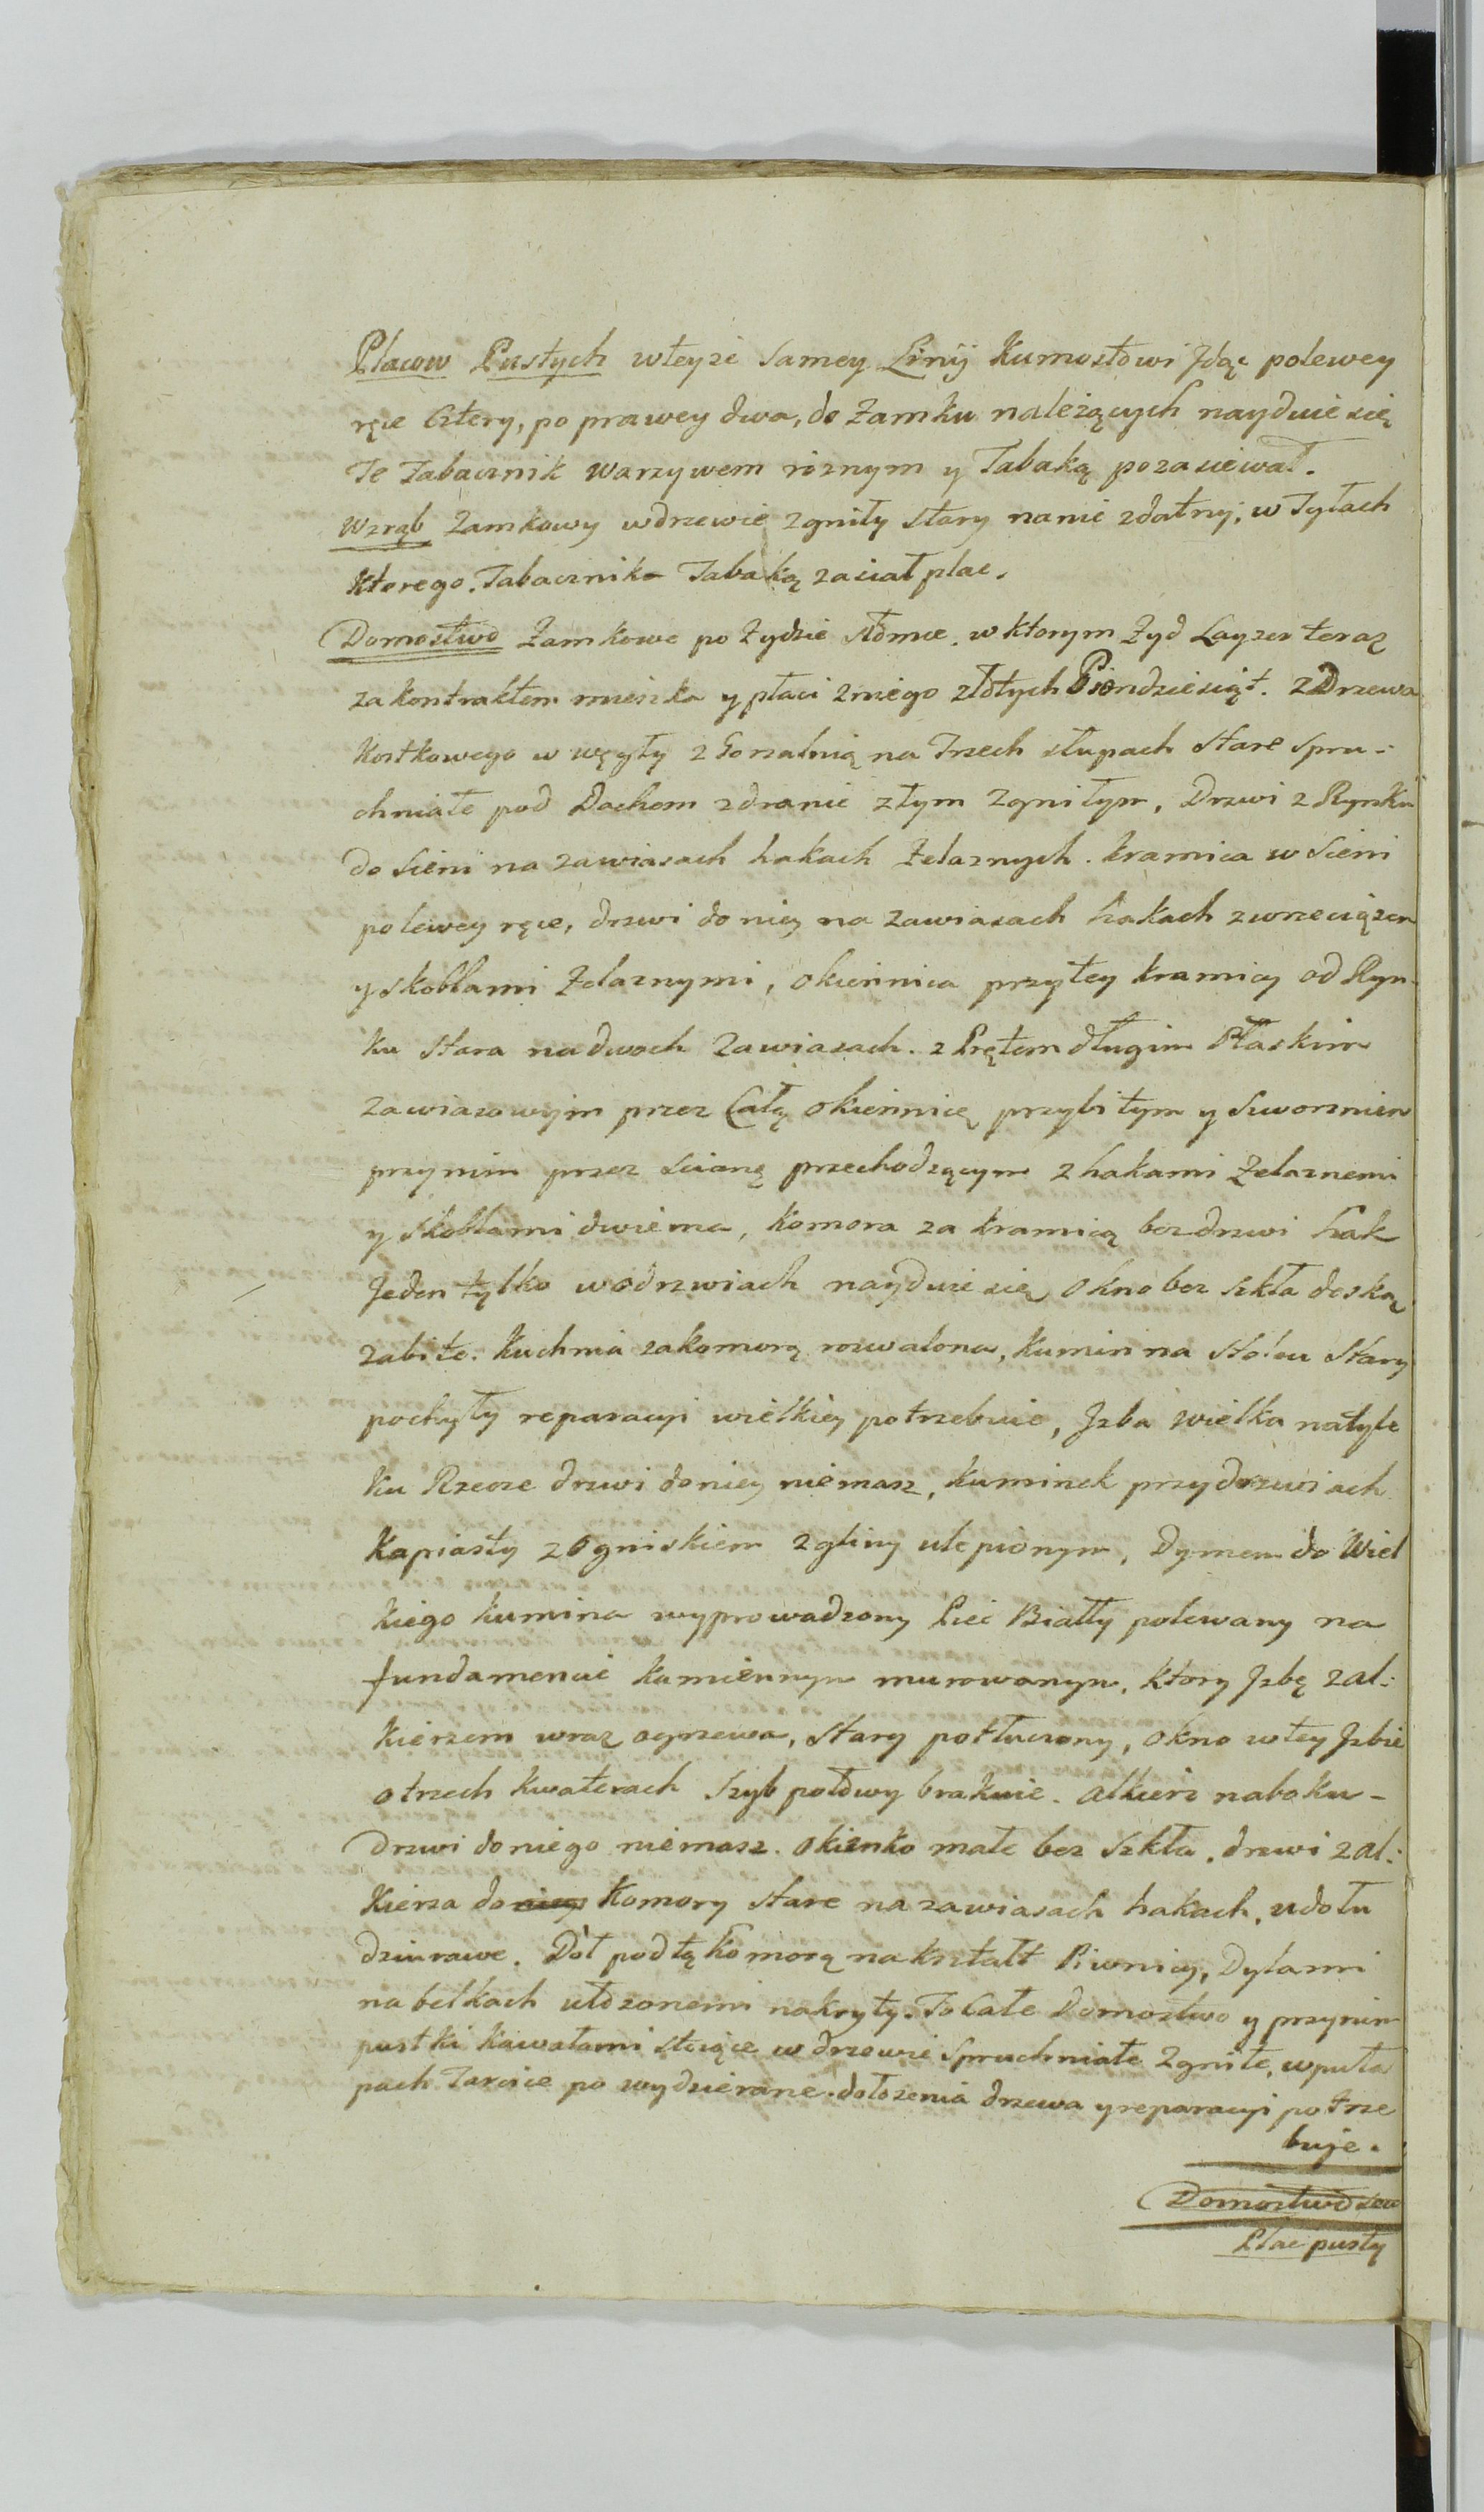 Placow Pustych wteyże samey Linij Kumostowi Jdąc polewey
ręce Cztery, po prawey dwa, do Zamku należących nayduie się
Te Tabacznik warzywem rożnym y Tabaką pozasiewał.
Wzrąb Zamkowy wdrzewie zgniły stary nanic zdatny, w Tyłach
ktorego Tabacznik Tabaką zasiał plac.
Domostwo Zamkowe po Zydzie w ktorym Zyd Layzer teraz
za kontraktem mieszka y płaci zniego złotych Piondziesiąt. z Drzewa
Kostkowego w węgły z Gorzalnią na Trzech słupach stare spru-
chniałe pod Dachem zdranic złym zgniłym, Drzwi z Rynku
do sieni na zawiasach hakach żelaznych. kramica w sieni
polewey ręce, drzwi do niey na zawiasach hakach zwrzeciązem
y skoblami żelaznymi, okiennica przytey kramicy od Ryn-
ku stara nadwoch zawiasach. z Prętem długim Płaskim
zawiasowym przez Całą okiennicę przybitym y sworzniem
przynim przez scianę przechodzącym z hakami żelaznemi
y skoblami dwiema, komora za kramicą bez drzwi hak
Jeden tylko wodrzwiach nayduie się okno bez szkła deską
zabite. kuchnia zakomorą rozwalona, kumin na stolcu stary
pochyły reparacyi wielkiey potrzebuie, Jzba wielka natyle
ku Rzecze drzwi doniey niemasz, kuminek przydrzwiach
Kapiasty z Ogniskiem zgliny ulepionym, Dymem do Wiel
kiego kumina wyprowadzony Piec Biały polewany na
fundamencie kamiennym murowanym, ktory Jzbę z al-
kierzem wraz ogrzewa, stary potłuczony, okno wtey Jzbie
otrzech kwaterach szyb połdwy brakuie. alkierz naboku -
Drzwi doniego niemasz. okienko małe bez szkła, drzwi z al-
kierza do niey komory stare na zawiasach hakach, udołu
dziurawe. Doł podtą komorą nakształt Piwnicy, Dylami
nabelkach ułozonemi nakryty. To Całe Domostwo y przynim
pustki kawałami stoiące w drzewie spruchniałe zgniłe, wpuła
pach Tarcice po wydzierane. dołożenia drzewa yreparacyi potrze
buje.
Domostwo
Plac pusty